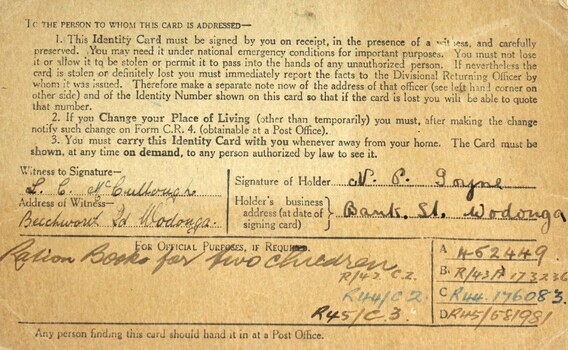 TO THE PERSON TO WHOM THIS CARD IS ADDRESSED—
1. This Identity Card must be signed by you on receipt, in the presence of a witness, and carefully
preserved. You may need it under national emergency conditions for important purposes. You must not lose
it or allow it to be stolen or permit it to pass into the hands of any unauthorized person. If nevertheless the
card is stolen or definitely lost you must immediately report the facts to the Divisional Returning Officer by
whom it was issued. Therefore make a separate note now of the address of that officer (see left hand corner on
other side) and of the Identity Number shown on this card so that if the card is lost you will be able to quote
that number.
2. If you Change your Place of Living (other than temporarily) you must, after making the change
notify such change on Form C.R. 4. (obtainable at a Post Office).
3. You must carry this Identity Card with you whenever away from your home. The Card must be
shown, at any time on demand, to any person authorized by law to see it.
Witness to Signature—
L. C. McCullough
Address of Witness—
Beechworth Rd Wodonga.
Signature of Holder N. P. Goyne
Holder's business
address (at date of
signing card)
Bank. St. Wodonga
FOR OFFICIAL PURPOSES, IF REQUIRED.
Ration Books for two children
R/42 C.2.
R44/C2.
R45/C.3.
A 462449.
B. R/43/P 173236
C R44. 176083.
D R45/581981
Any person finding this card should hand it in at a Post Office.